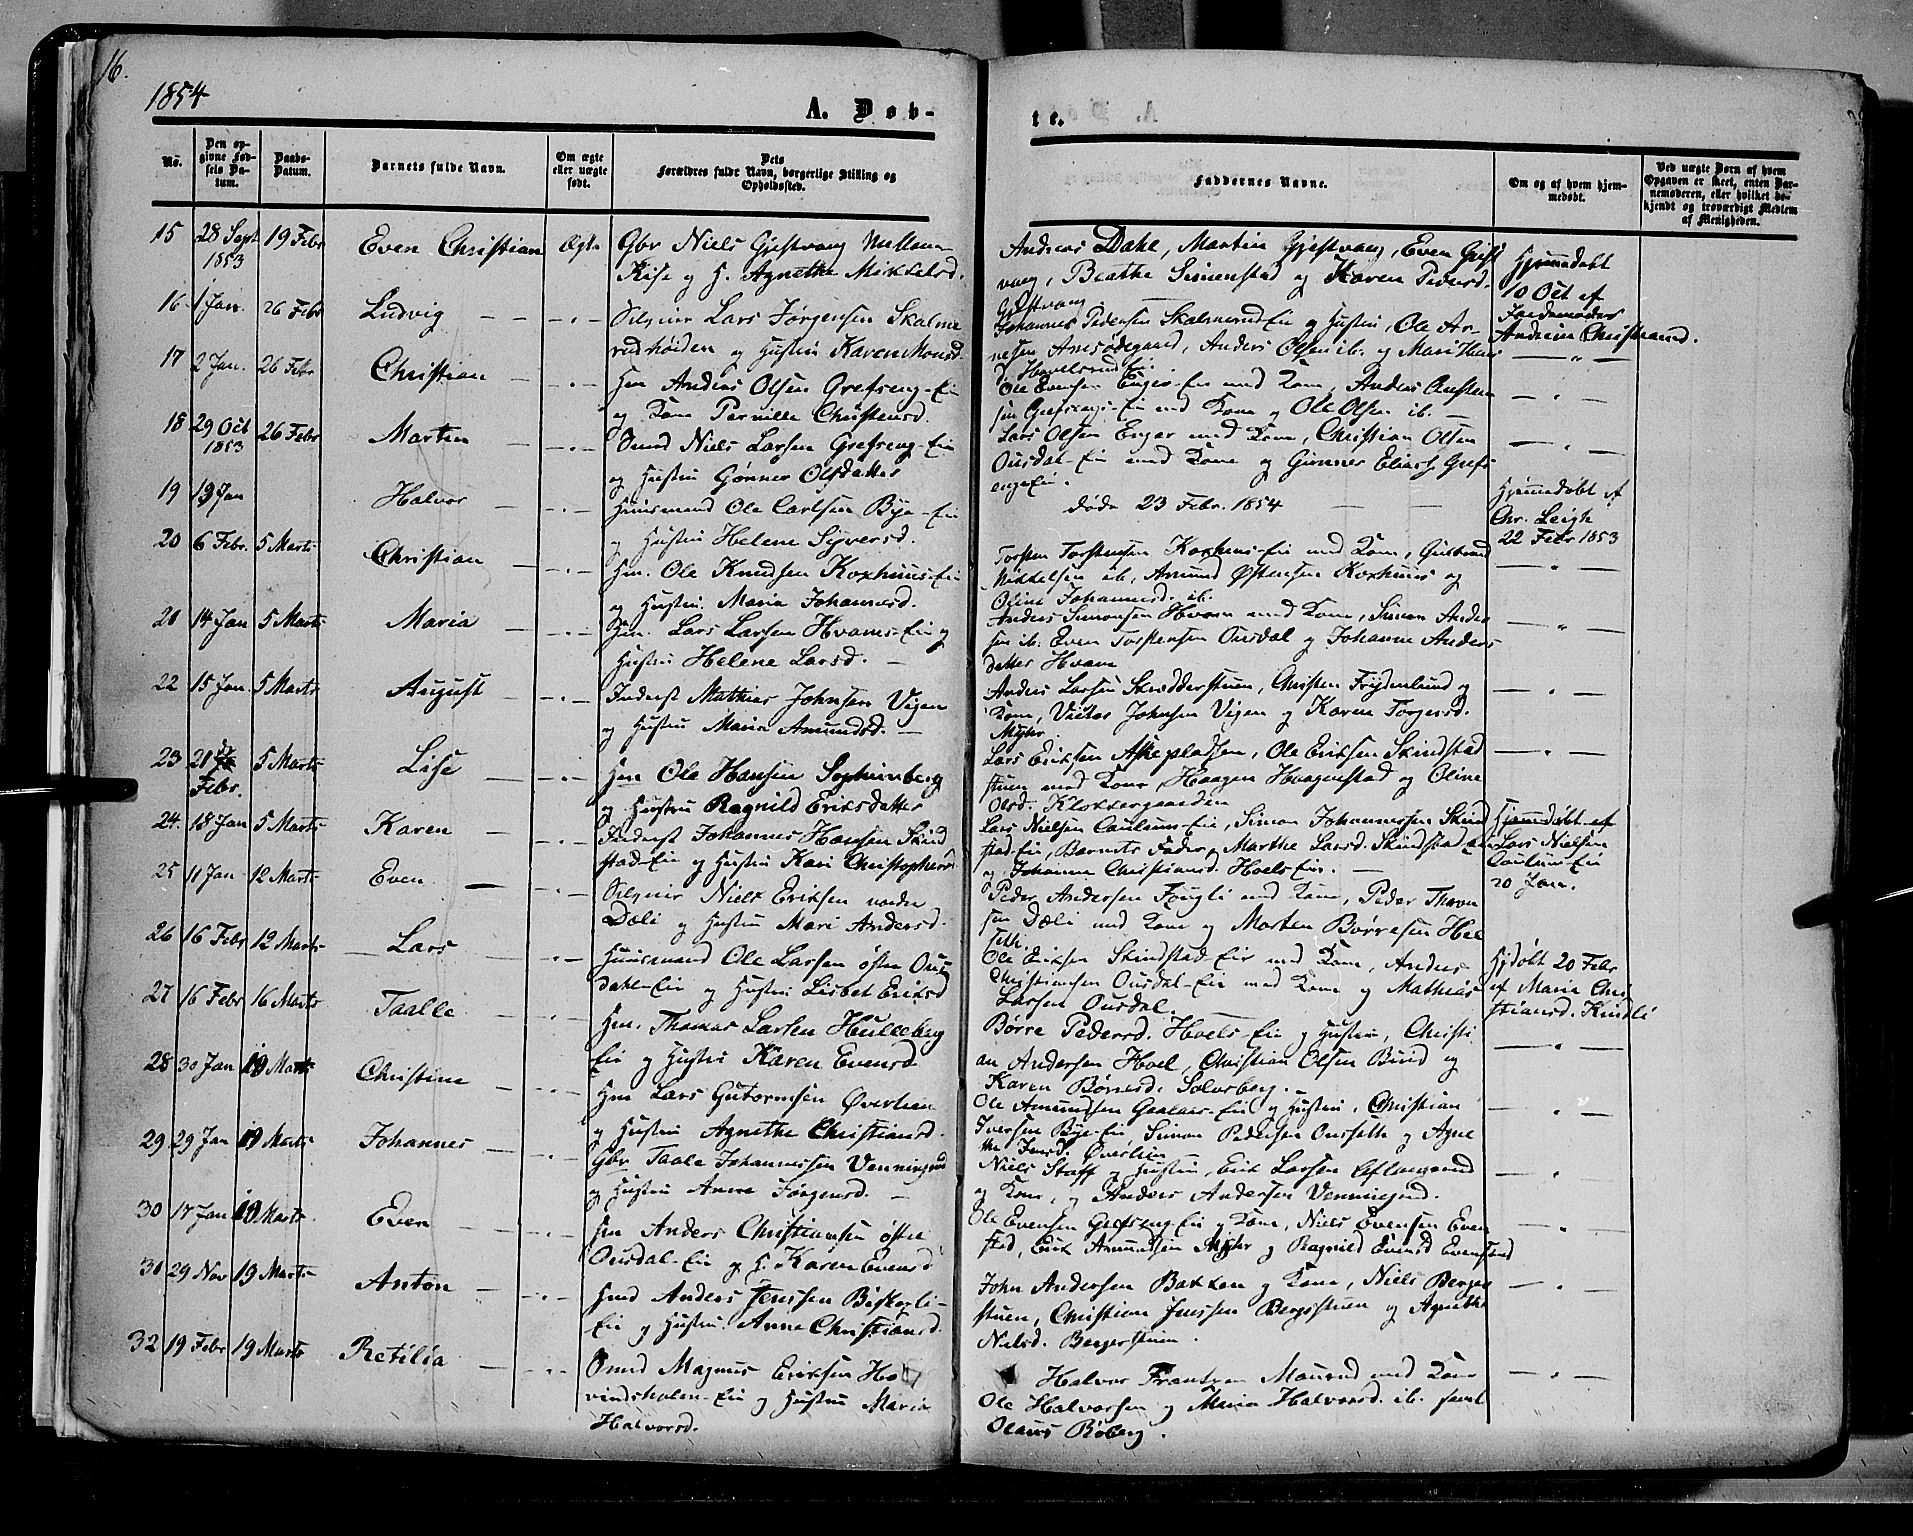 16.
1854
A. Døb-
te.
No.
Den opgivne Fødsels Datum.
Daabs-Datum.
Barnets fulde Navn.
Om ægte eller uægte født.
Dets Forældres fulde Navn, borgerlige Stilling og Opholdssted.
Faddernes Navne.
Om og af hvem hjemmedøbt.
Ved uægte Børn af hvem Opgaven er skeet, enten Barnemoderen, eller hvilket bekjendt og troværdigt Medlem af Menigheden.
15 28 Sept 1853 19 Febr Even Christian Ægte
Gbr Niels Gjestvang Mellem
Kise og H. Agnethe Mikkelsd.
Andreas Dahl, Martin Gjestvang, Even Gjest
vang, Beathe Simenstad og Karen Pedersd.
Gjestvang
Hjemmedøbt
10 Oct af
Jordemoder
Andrine Christiansd.
16 1 Jan. 26 Febr Ludvig — " —
Selveier Lars Jørgensen Skalme
rudhøiden og Hustru Karen Monsd.
Johannes Pedersen Skalmerud Eie og Hustru, Ole Ar
nesen Amsødegaard, Anders Olsen ib. og Mari
Hovelsrud Eie.
17 2 Jan. 26 Febr Christian — " —
Hm Anders Olsen Grefseng-Eie
og Kone Pernille Christensd.
Ole Evensen Enger-Eie med Kone, Anders Christen
sen Grefsengs-Eie med Kone og Ole Olsen ib. —
18 29 Oct 1853 26 Febr Martin — " —
Smed Niels Larsen Grefseng-Eie
og Hustru Gønner Olsdatter
Lars Olsen Enger med Kone, Christian Olsen
Ousdal-Eie med Kone og Gunner Eliass. Grefs
engeie.
19 13 Jan Halvor — " —
Huusmand Ole Carlsen Bye-Eie
og Hustru Helene Syversd.
døde 23 Febr. 1854 — —
Hjemmedøbt af
Chr. Leigh
22 Febr 1853
20 6 Febr. 5 Marts Christian — " —
Hm. Ole Knudsen Koxhuus-Eie
og Hustru Maria Johannesd.
Torsten Torstensen Koxhuus-Eie med Kone, Gulbrand
Mikkelsen ib, Amund Østensen Koxhuus og
Oline Johannesd. ib.
21 14 Jan 5 Marts Maria — " —
Hm. Lars Larsen Hvams-Eie og
Hustru Helene Larsd. —
Anders Simensen Hvam med Kone, Simen Ander
sen ib. Even Torstensen Ousdal og Johanne Anders
datter Hvam
22 15 Jan. 5 Marts August — " —
Inderst Mathias Johnsen Vigen
og Hustru Maria Amundsd. —
Anders Larsen Skrædderstuen, Christen Frydenlund og
Kone, Johnsen Vigen og Karen Torgersd.
Myhr.
23 21 Febr. 5 Marts Lise — " —
Hm Ole Hansen Sophienberg
og Hustru Ragnild Eriksdatter
Lars Eriksen Askeplassen, Ole Eriksen Skindstad
stuen med Kone, Haagen Haagenstad og Oline
Olsd. Klokkergaarden
24. 18 Jan 5 Marts Karen — " —
Inderst Johannes Hansen Skind
stad-Eie og Hustru Kari Christophersd
Lars Nielsen Caulum-Eie, Simon Johannessen Skind
stad-Eie, Barnets Fader og Marthe Larsd. Skindstad Eie
og Johanne Christiansd. Hoels Eie. —
Hjemmedøbt af
Lars Nielsen
Caulum-Eie
20 Jan.
25 11 Jan 12 Marts Even — " —
Selveier Niels Eriksen nordre
Dæli og Hustru Mari Andersd.
Peder Andersen Fougli med Kone, Peder Thron
sen Dæli med Kone og Morten Børresen Hel
seth.
26 16 Febr 12 Marts Lars — " —
Huusmand Ole Larsen østre Ous
dahl-Eie og Hustru Lisbet Eriksd
Ole Eriksen Skindstad Eie med Kone, Anders
Christiansen Ousdal-Eie med Kone og Mathias
Larsen Ousdal. —
Hjdøbt 20 Febr
af Maria Chri
stiansd. Kindli
27 16 Febr 16 Marts Taalle — " —
Hm. Thomas Larsen Hulleberg
Eie og Hustru Karen Evensd
Børre Pedersd. Hoels-Eie og Hustru, Christi
an Andersen Hoel, Christian Olsen Burid og
Karen Børresd. Solvsberg. —
28 30 Jan 19 Marts Christine — " —
Hm Lars Gutormsen Øverlien
og Hustru Agnethe Christiansd.
Ole Amundsen Gaalaas-Eie og Hustru, Christian
Iversen Bye-Eie, Simon Pedersen Ousseth og Agne
the Jensd. Øverlien
29 29 Jan 19 Marts Johannes — " —
Gbr Taale Johannessen Venningrud
og Hustru Anne Jørgensd. —
Niels Staff og Hustru, Erik Larsen Eflangrud
og Kone, og Anders Andersen Venningrud.
30 17 Jan 19 Marts. Even — " —
Hm Anders Christiansen østre
Ousdal-Eie og H. Karen Evensd
Ole Evensen Grefseng-Eie og Kone, Niels Evensen Even
stad, Erik Amundsen Myhr og Ragnild Evensd Evenstad
31 29 Nov 19 Marts Anton — " —
Hmd Anders Jenssen Biskerli-
Eie og Hustru. Anne Christiansd.
John Andersen Bakken og Kone, Niels Berger
stuen, Christian Jenssen Bergsstuen og Agnethe
Nielsd. Bergerstuen.
32 19 Febr 19 Marts Retilia — " —
Smed Magnus Eriksen Ho
vindsholm-Eie og Hustru Maria
Halvorsd.
Halvor Frantzen Maurud med Kone
Ole Halvorsen og Maria Halvorsd. ib. samt
Olaus Røberg.